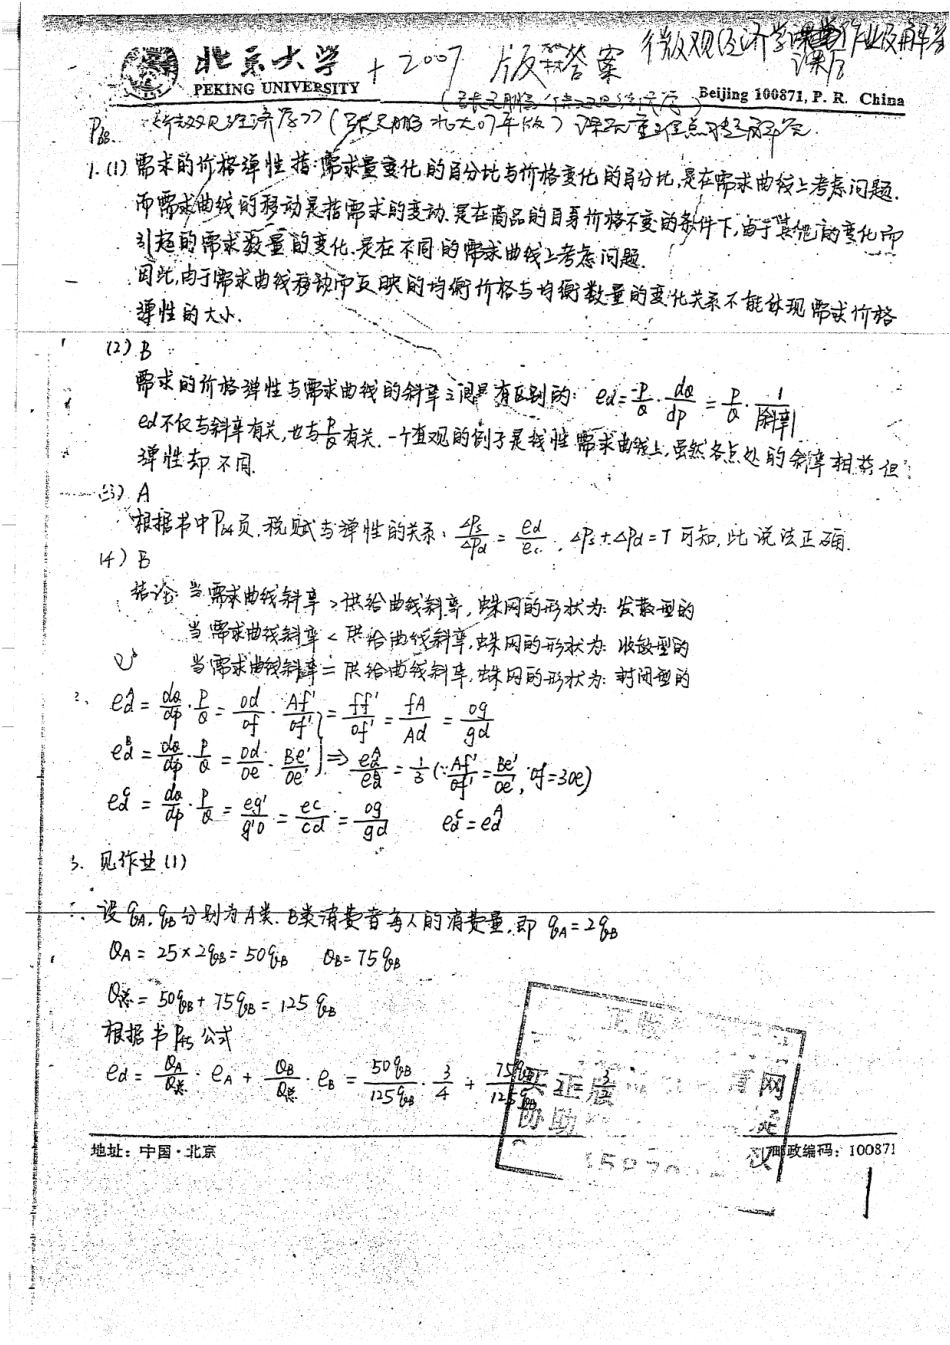 微观经济学课堂作业及解答
北京大学 + 2007 版 答案 课后
PEKING UNIVERSITY
Beijing 100871, P. R. China
1.(1) 需求的价格弹性指:需求量变化的百分比与价格变化的百分比,是在需求曲线上考虑问题.
而需求曲线的移动是指需求的变动.是在商品的自身价格不变的条件下,由于其他 的变化而
引起的需求数量的变化.是在不同的需求曲线上考虑问题.
因此,由于需求曲线移动而反映的均衡价格与均衡数量的变化关系不能体现需求价格
弹性的大小.
(2) B
需求的价格弹性与需求曲线的斜率之间是有区别的: ed=-P/Q·dQ/dP=P/Q·1/|斜率|
ed不仅与斜率有关,也与P/Q有关.一个直观的例子是线性需求曲线上,虽然各点处的斜率相等但
弹性却不同.
(3) A
根据书中P64页,税赋与弹性的关系: ΔPs/ΔPd = ed/es , ΔPs+ΔPd=T可知,此说法正确.
(4) B
结论: 当需求曲线斜率>供给曲线斜率,蛛网的形状为: 发散型的
当需求曲线斜率<供给曲线斜率,蛛网的形状为: 收敛型的
当需求曲线斜率=供给曲线斜率,蛛网的形状为: 封闭型的
2、 edA = dQ/dP·P/Q = od/of·Af'/of' = ff'/of' = fA/Ad = og/gd
edB = dQ/dP·P/Q = od/oe·Be'/oe' ⇒ edA/edB = 1/3 (∵Af'/of' = Be'/oe', of=3oe)
edC = dQ/dP·P/Q = eg'/g'o = ec/cd = og/gd edC=edA
3、见作业(1)
设qA,qB分别为A类、B类消费者每人的消费量,即 qA=2qB
QA=25×2qB=50qB QB=75qB
Q总=50qB+75qB=125qB
根据书P45公式
ed = QA/Q总·eA + QB/Q总·eB = 50qB/125qB·3/4 +
买正版
协助
网
议
地址: 中国·北京
邮政编码: 100871
1